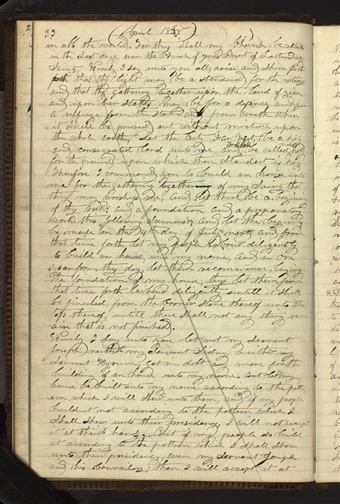 33 (April 1838)
in all the world; For thus shall my Church be called
in the last days even the Church of Jesus Christ of Latter Day
Saints, Verily I say unto you all; arise and shine forth
forth that thy light may be a standard for the nations
and that the gathering together upon the land of Zion
and upon her stakes may be for a defence and for
a refuge from the storm and from wrath when
it shall be poured out without mixture upon
the whole Earth, Let the City Far West be a holy
and consecrated land unto me, and be called
for the ground upon which thou standest is holy
Therefore I command you to build an house unto
me for the gathering together of my Saints that
they may worship me, and let there be a begining
of this work; and a foundation and a preparatory
work, this following Summer; and let the begining
be made on the 4th day of July next; and from
that time forth let my people labour diligently
to build an house, unto my name, and in one
year from this day, let them recommence laying
the foundation of my house; thus let them from
that time forth labour untill it shall
be finished, from the Corner Stone thereof unto the
top thereof, untill there shall not any thing rem
ain that is not finished.
Verily I say unto you let not my servant
Joseph neither my Servant Sidney neither my
Servant Hyrum, get in debt any more for the
building of an house unto my name. But let my
house be built unto my name according to the patt
ern which I will shew unto them, and if my people
build it not according to the pattern which I
shall shew unto their presidency, I will not accept
it at their hands. But if my people do build
it according to the pattern which I shall shew
unto their presidency, even my servant Joseph
and his Councilors; then I will accept it at